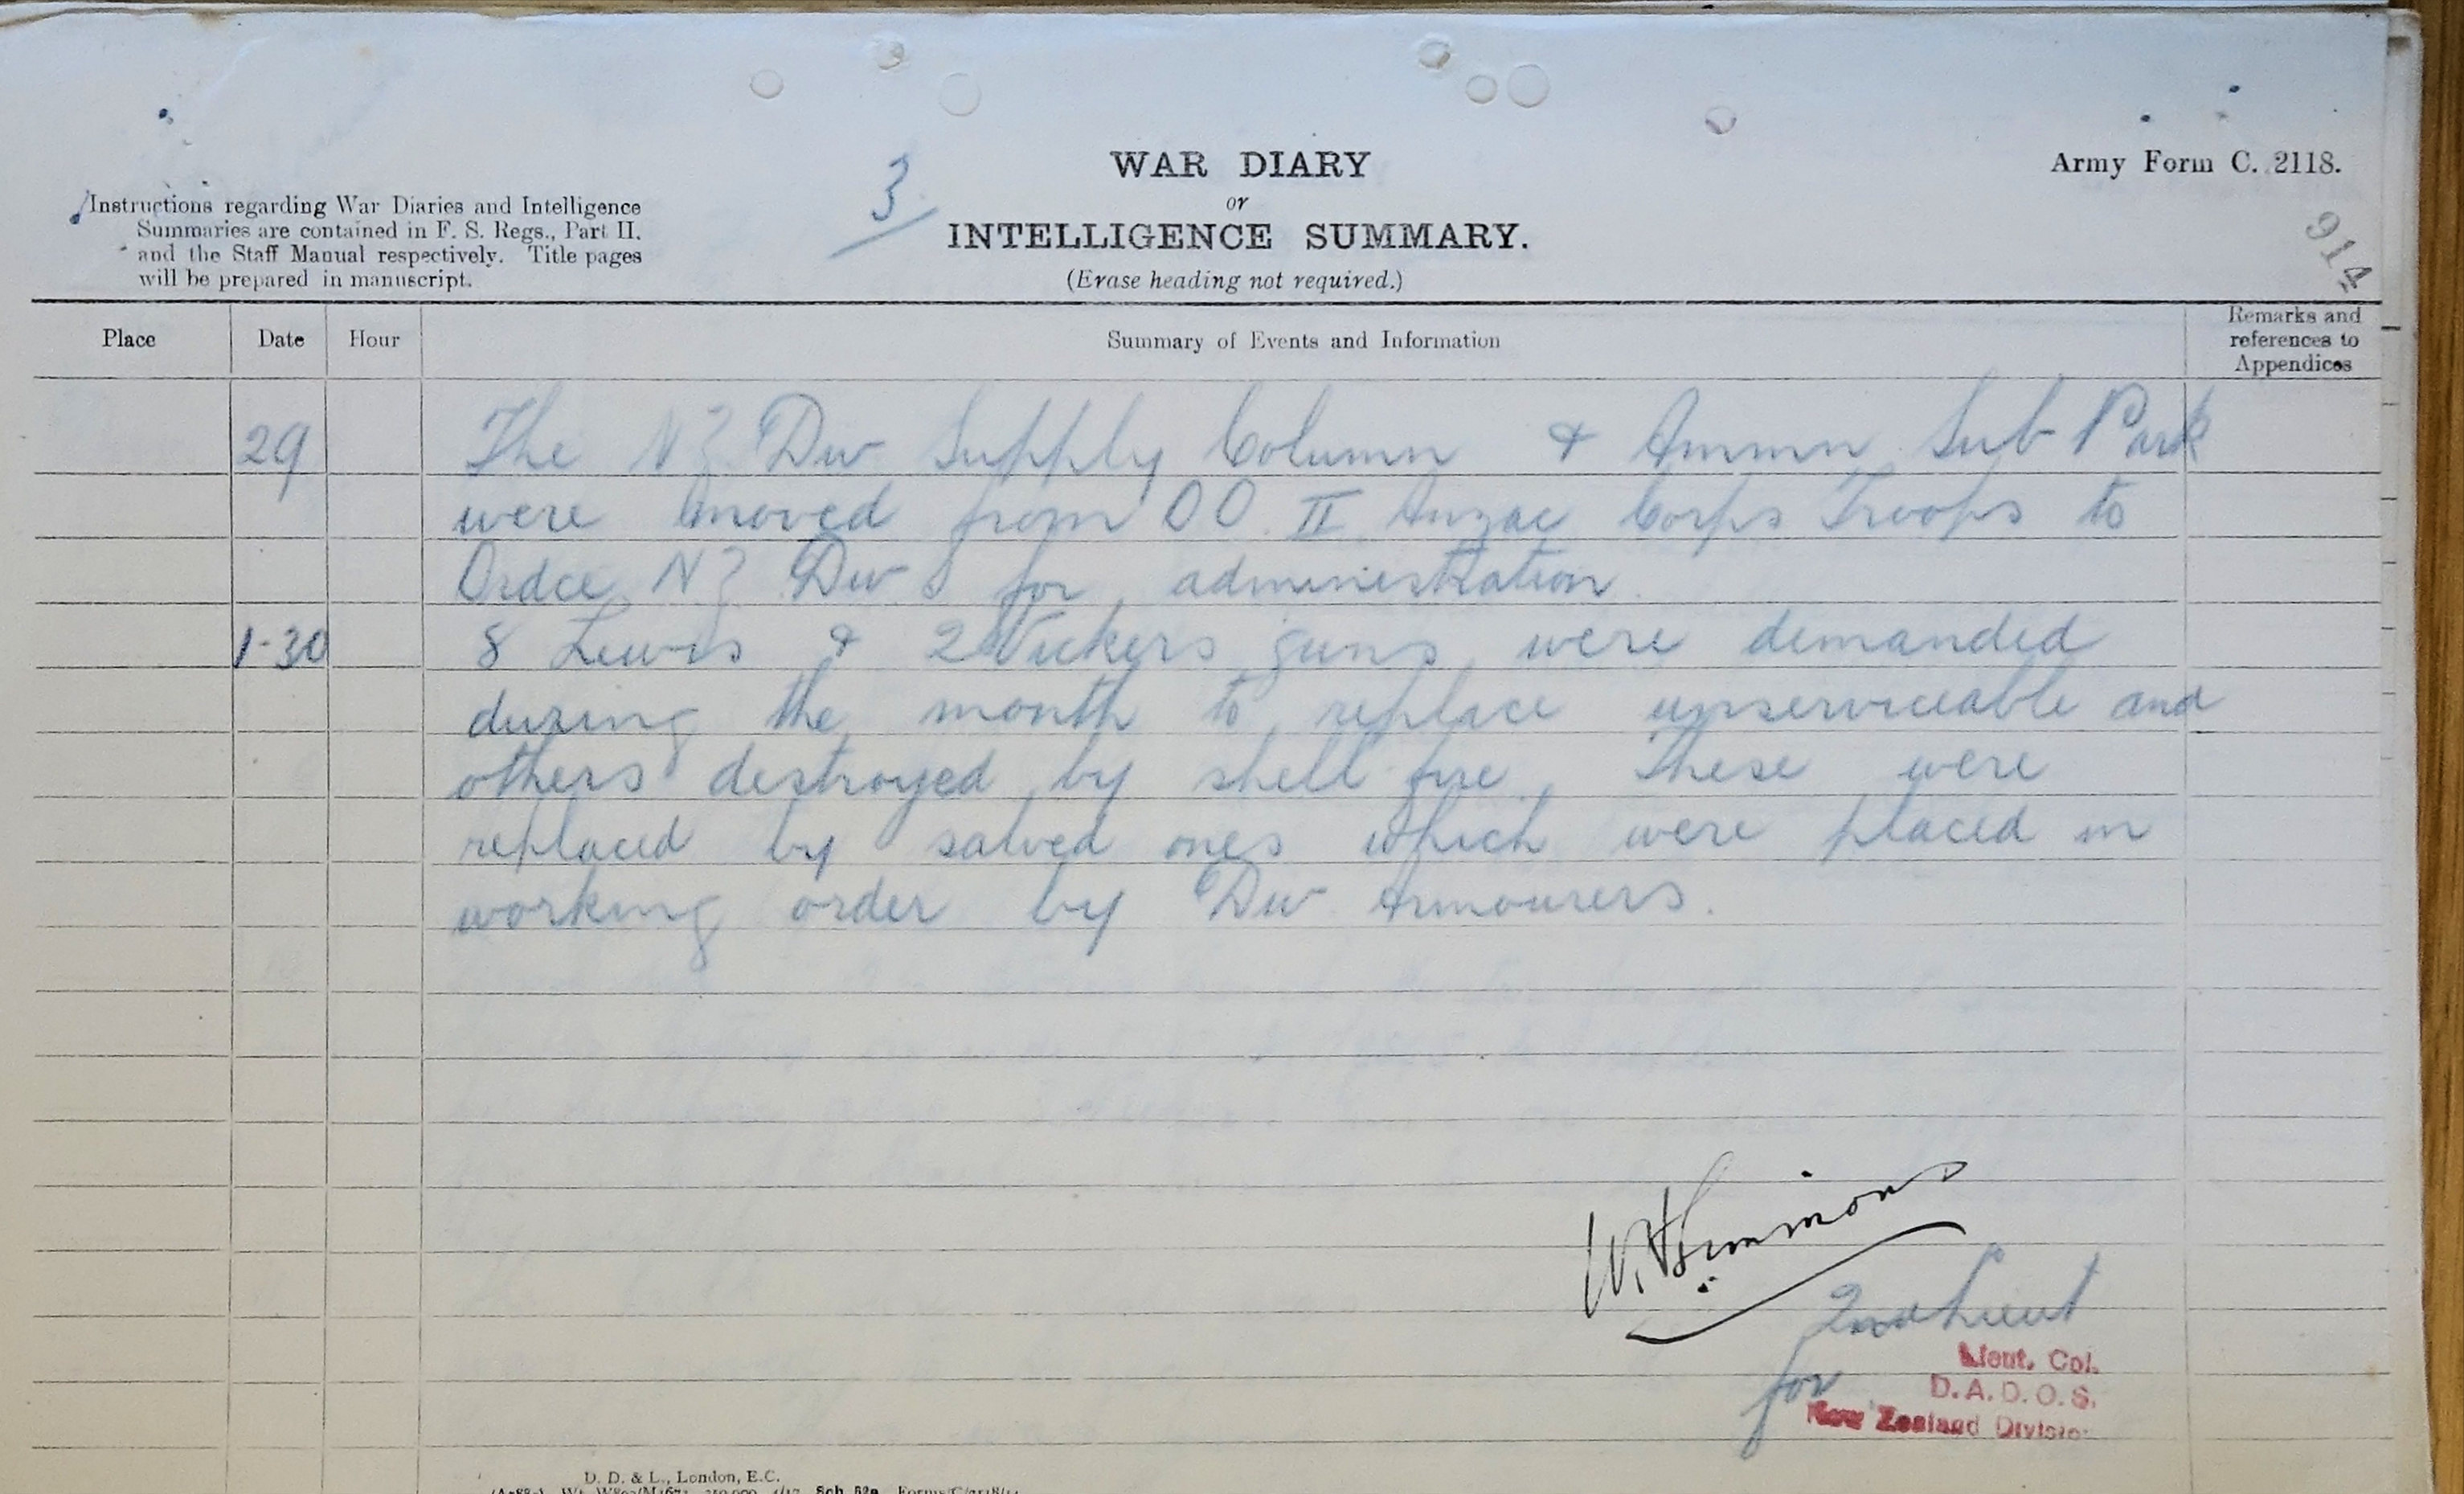 WAR DIARY
or
INTELLIGENCE SUMMARY.
(Erase heading not required.)
Army Form C. 2118.
Instructions regarding War Diaries and Intelligence
Summaries are contained in F. S. Regs., Part II.
and the Staff Manual respectively. Title pages
will be prepared in manuscript.
3
914
Place Date Hour Summary of Events and Information Remarks and
references to
Appendices
29 The NZ Div Supply Column & Ammn Sub Park
were moved from OO II Anzac Corps Troops to
Ordce NZ Div for administration.
1-30 8 Lewis & 2 Vickers guns were demanded
during the month to replace unserviceable and
others destroyed by shell fire. These were
replaced by salved ones which were placed in
working order by Div Armourers.
W. H. Simmons
2nd Lieut
for
Lieut. Col.
D.A.D.O.S.
New Zealand Division
D. D. & L., London, E.C.
Sch. 52a